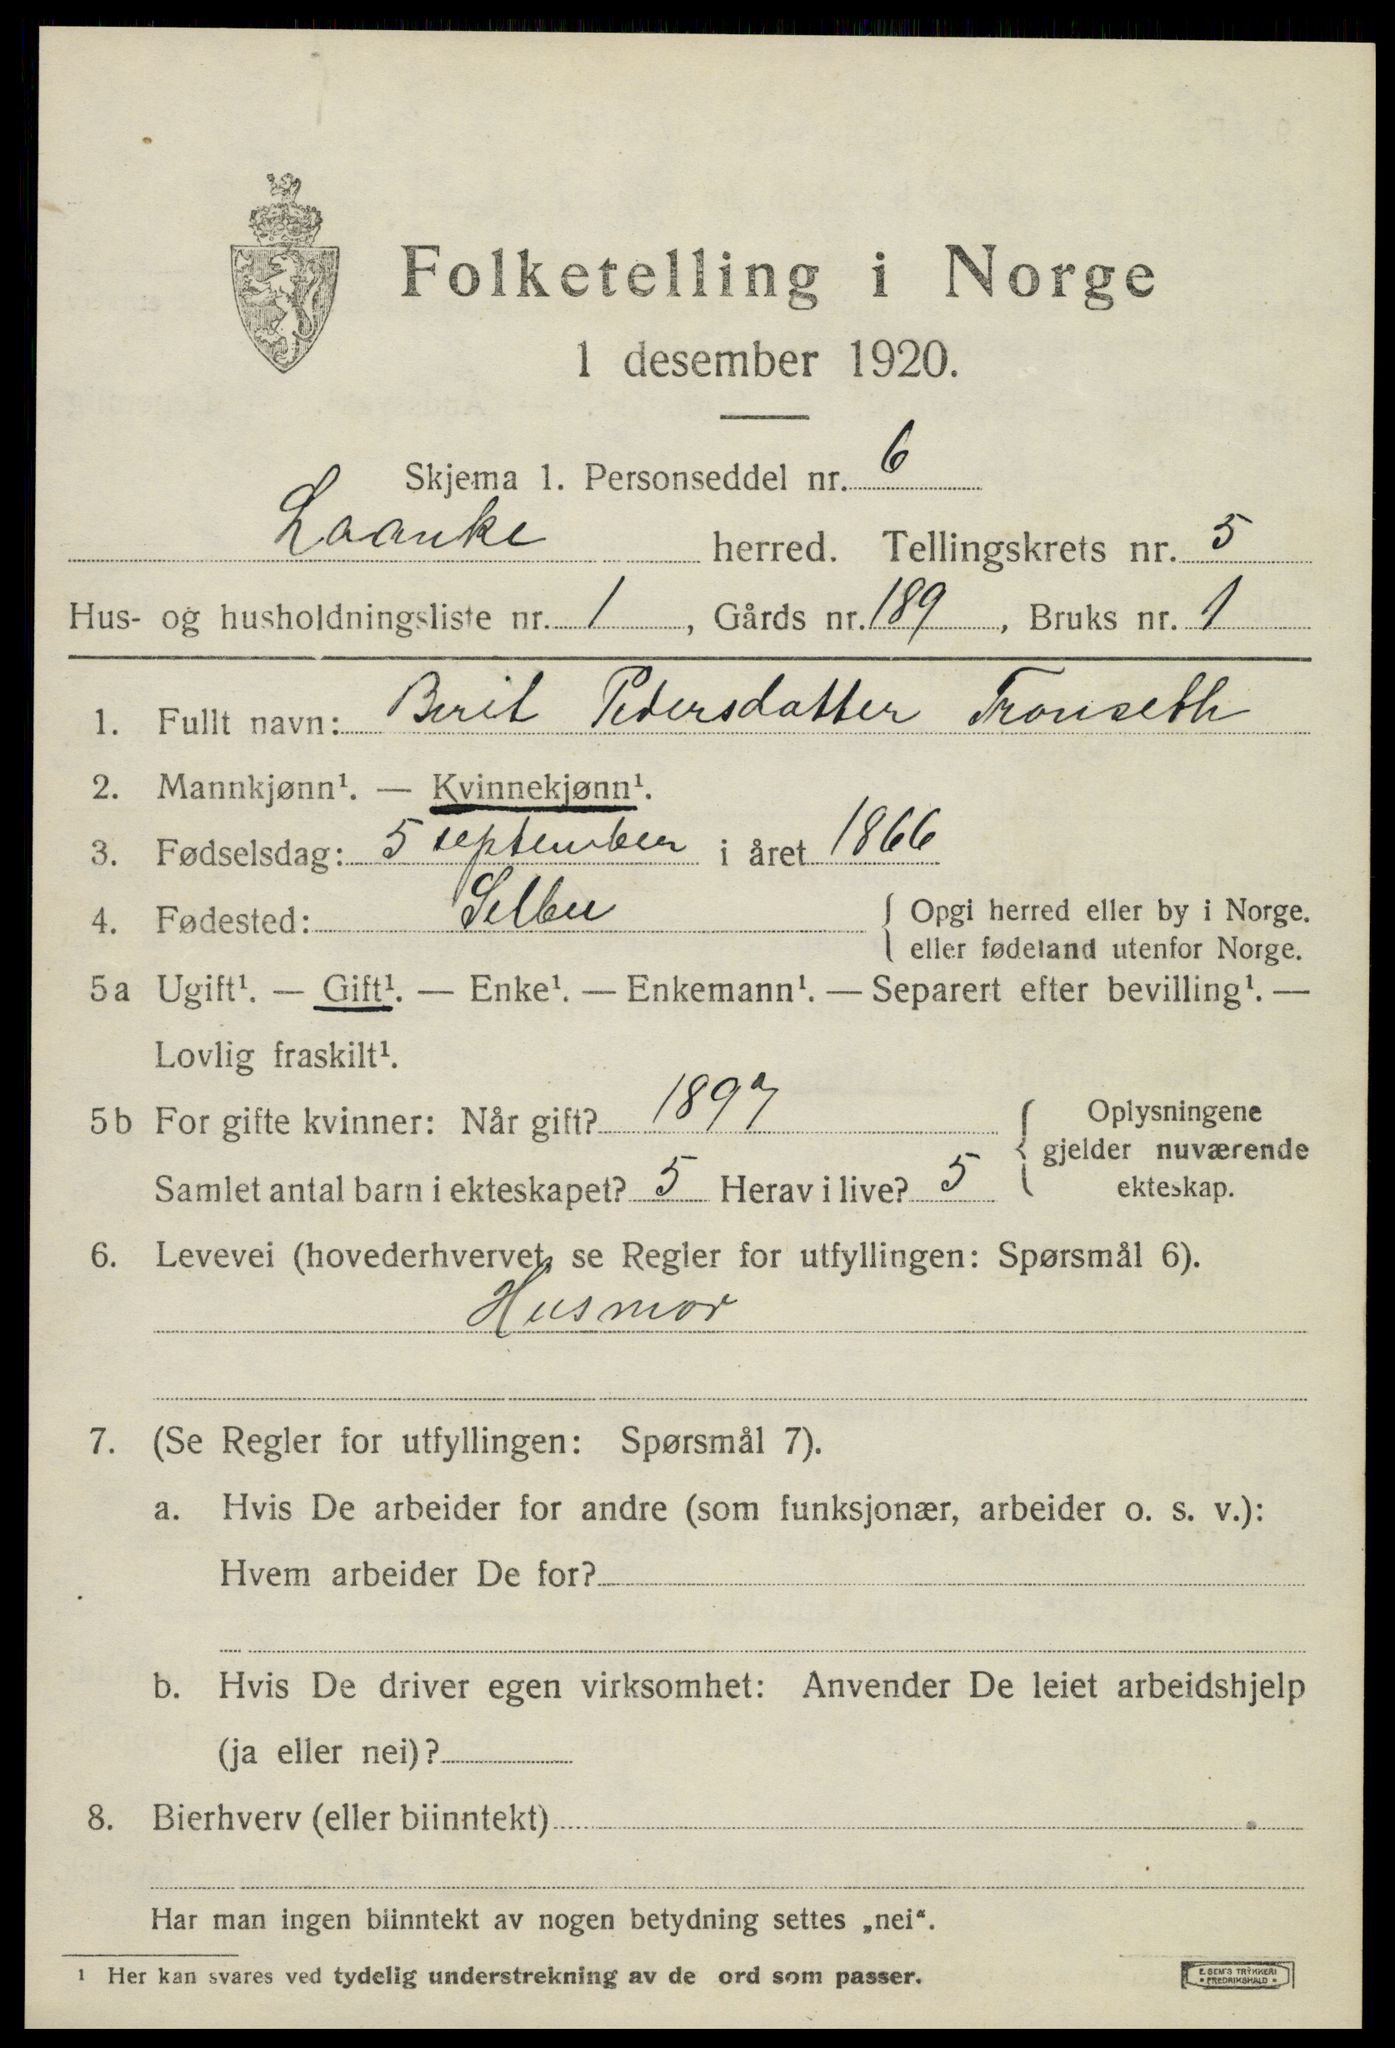 Folketelling i Norge
1 desember 1920.
Skjema 1. Personseddel nr. 6
Laanke herred. Tellingskrets nr. 5
Hus- og husholdningsliste nr. 1, Gårds nr. 189, Bruks nr. 1
1. Fullt navn: Berit Pedersdatter Tronseth
2. Mannkjønn¹. — Kvinnekjønn¹.
3. Fødselsdag: 5 september i året 1866
4. Fødested: Selbu { Opgi herred eller by i Norge.
eller fødeland utenfor Norge.
5a Ugift¹. — Gift¹. — Enke¹. — Enkemann¹. — Separert efter bevilling¹. —
Lovlig fraskilt¹.
5b For gifte kvinner: Når gift? 1897
Samlet antal barn i ekteskapet? 5 Herav i live? 5
{ Oplysningene
gjelder nuværende
ekteskap.
6. Levevei (hovederhvervet, se Regler for utfyllingen: Spørsmål 6).
Husmor
7. (Se Regler for utfyllingen: Spørsmål 7).
a. Hvis De arbeider for andre (som funksjonær, arbeider o. s. v.):
Hvem arbeider De for?
b. Hvis De driver egen virksomhet: Anvender De leiet arbeidshjelp
(ja eller nei)?
8. Bierhverv (eller biinntekt)
Har man ingen biinntekt av nogen betydning settes „nei“.
¹ Her kan svares ved tydelig understrekning av de ord som passer.
E. SEM'S TRYKKERI
• FREDRIKSHALD •